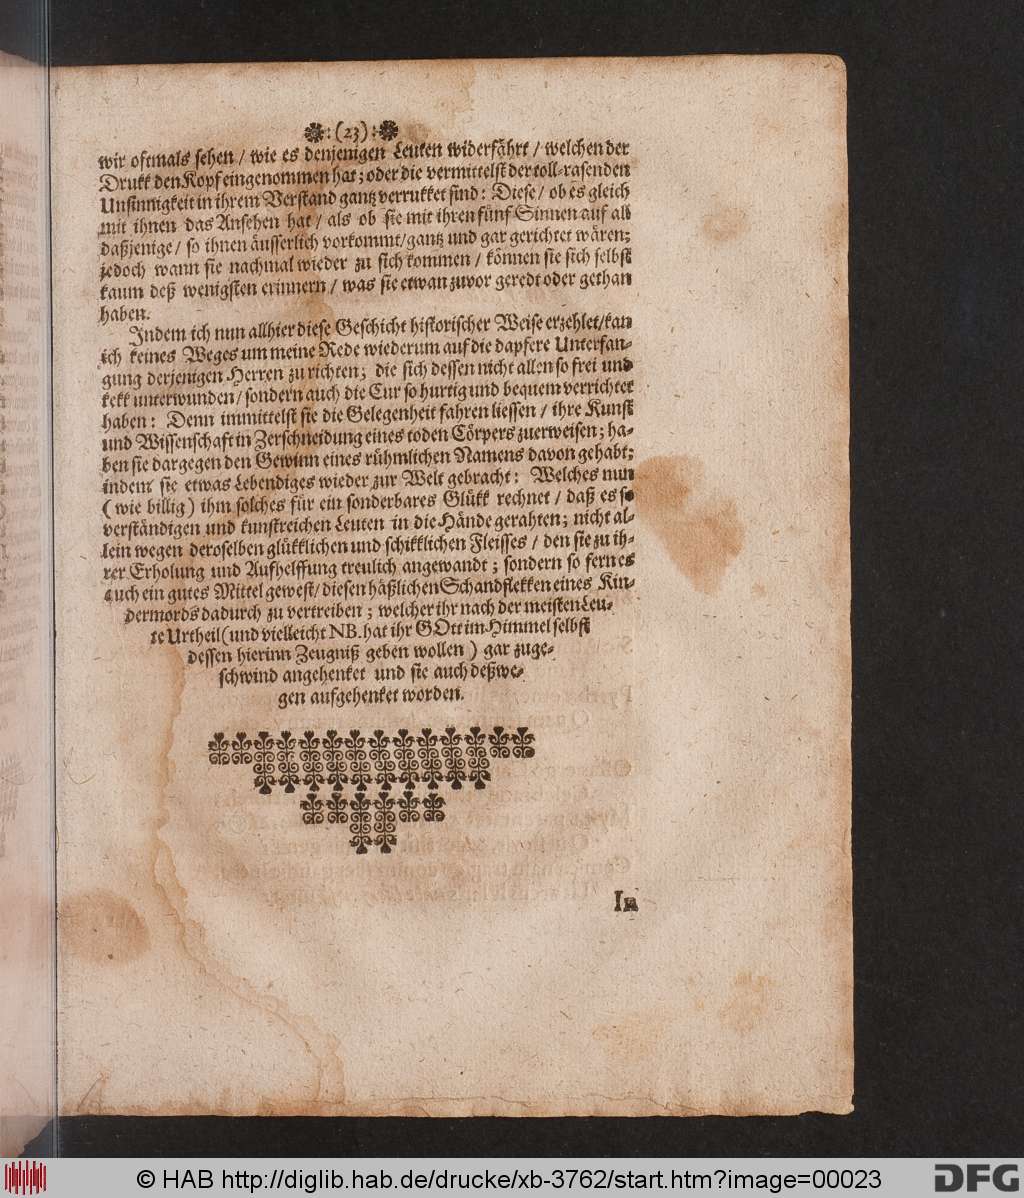 :(23):
wir oftmals sehen / wie es denjenigen Leuten widerfährt / welchen der
Drukk den Kopf eingenommen hat; oder die vermittelst der toll-rasenden
Unsinnigkeit in ihrem Verstand gantz verrukket sind: Diese / ob es gleich
mit ihnen das Ansehen hat / als ob sie mit ihren fünf Sinnen auf all
daßjenige / so ihnen äusserlich vorkommt / gantz und gar gerichtet wären;
jedoch wann sie nachmal wieder zu sich kommen / können sie sich selbst
kaum deß wenigsten erinnern / was sie etwan zuvor geredt oder gethan
haben.
Indem ich nun allhier diese Geschicht historischer Weise erzehlet / kan
ich keines Weges um meine Rede wiederum auf die dapfere Unterfan-
gung derjenigen Herren zu richten; die sich dessen nicht allen so frei und
kekk unterwunden / sondern auch die Cur so hurtig und bequem verrichtet
haben: Denn immittelst sie die Gelegenheit fahren liessen / ihre Kunst
und Wissenschaft in Zerschneidung eines toden Cörpers zuerweisen; ha-
ben sie dargegen den Gewinn eines rühmlichen Namens davon gehabt;
indem sie etwas Lebendiges wieder zur Welt gebracht: Welches nun
( wie billig ) ihm solches für ein sonderbares Glükk rechnet / daß es so
verständigen und kunstreichen Leuten in die Hände gerahten; nicht al-
lein wegen deroselben glükklichen und schikklichen Fleisses / den sie zu ih-
rer Erholung und Aufhelffung treulich angewandt; sondern so fern es
auch ein gutes Mittel gewest / diesen häßlichen Schandflekken eines Kin-
dermords dadurch zu vertreiben; welcher ihr nach der meisten Leu-
te Urtheil (und vielleicht NB. hat ihr GOtt im Himmel selbst
dessen hierinn Zeugniß geben wollen ) gar zuge-
schwind angehenket und sie auch deßwe-
gen aufgehenket worden.
In
© HAB http://diglib.hab.de/drucke/xb-3762/start.htm?image=00023
DFG